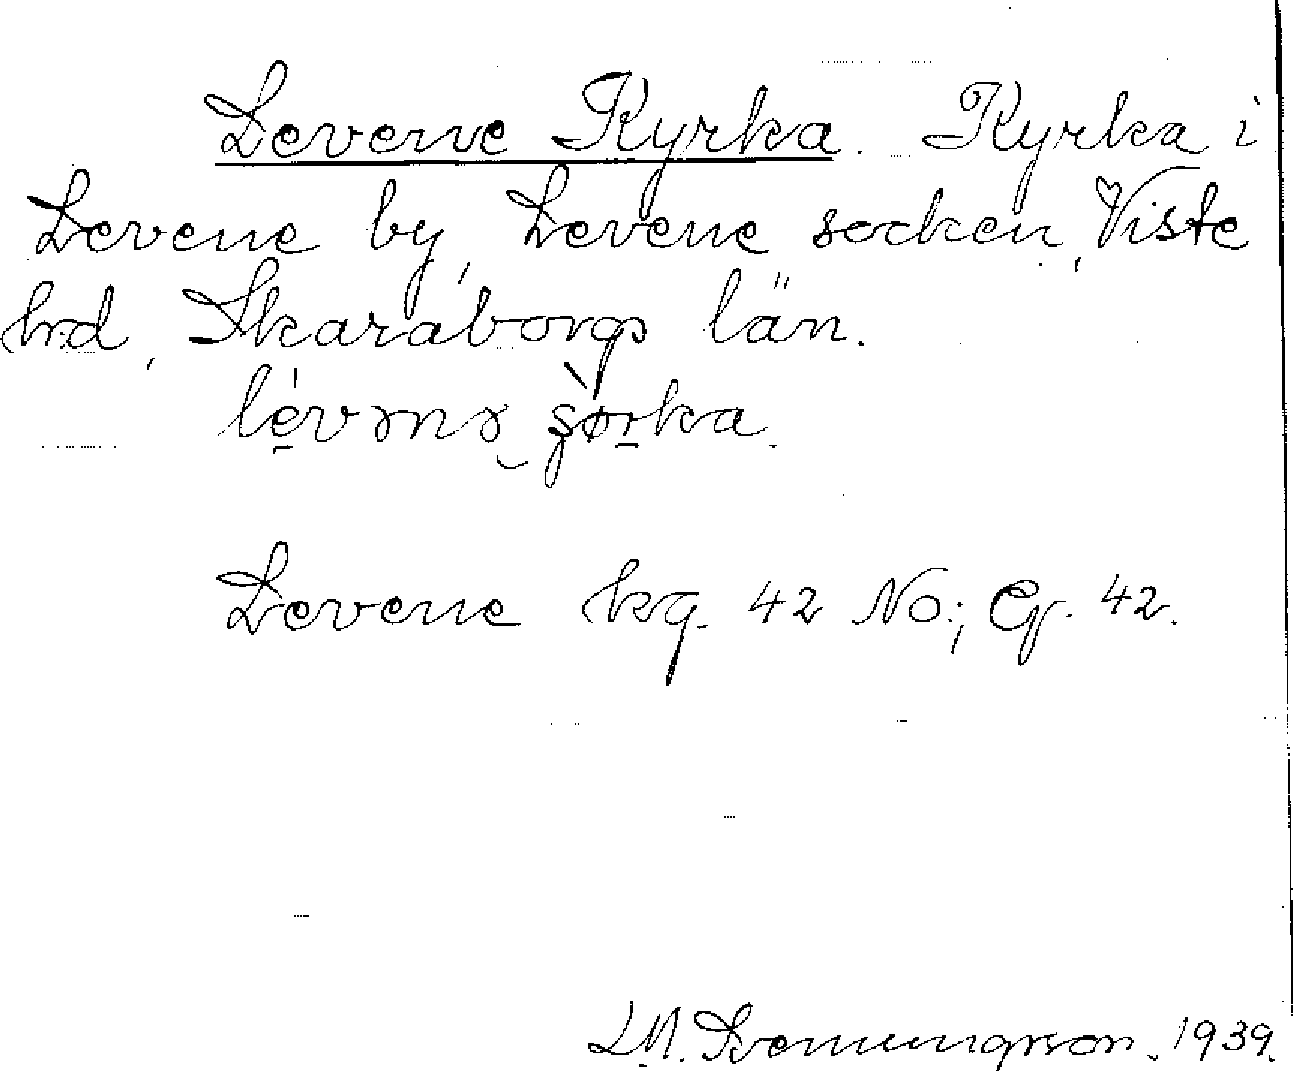 Levene Kyrka. Kyrka i
Levene by, Levene socken, Viste
hrd, Skaraborgs län.
Levene kg. 42 No.; Gr. 42.
L.M. Svenungsson. 1939.